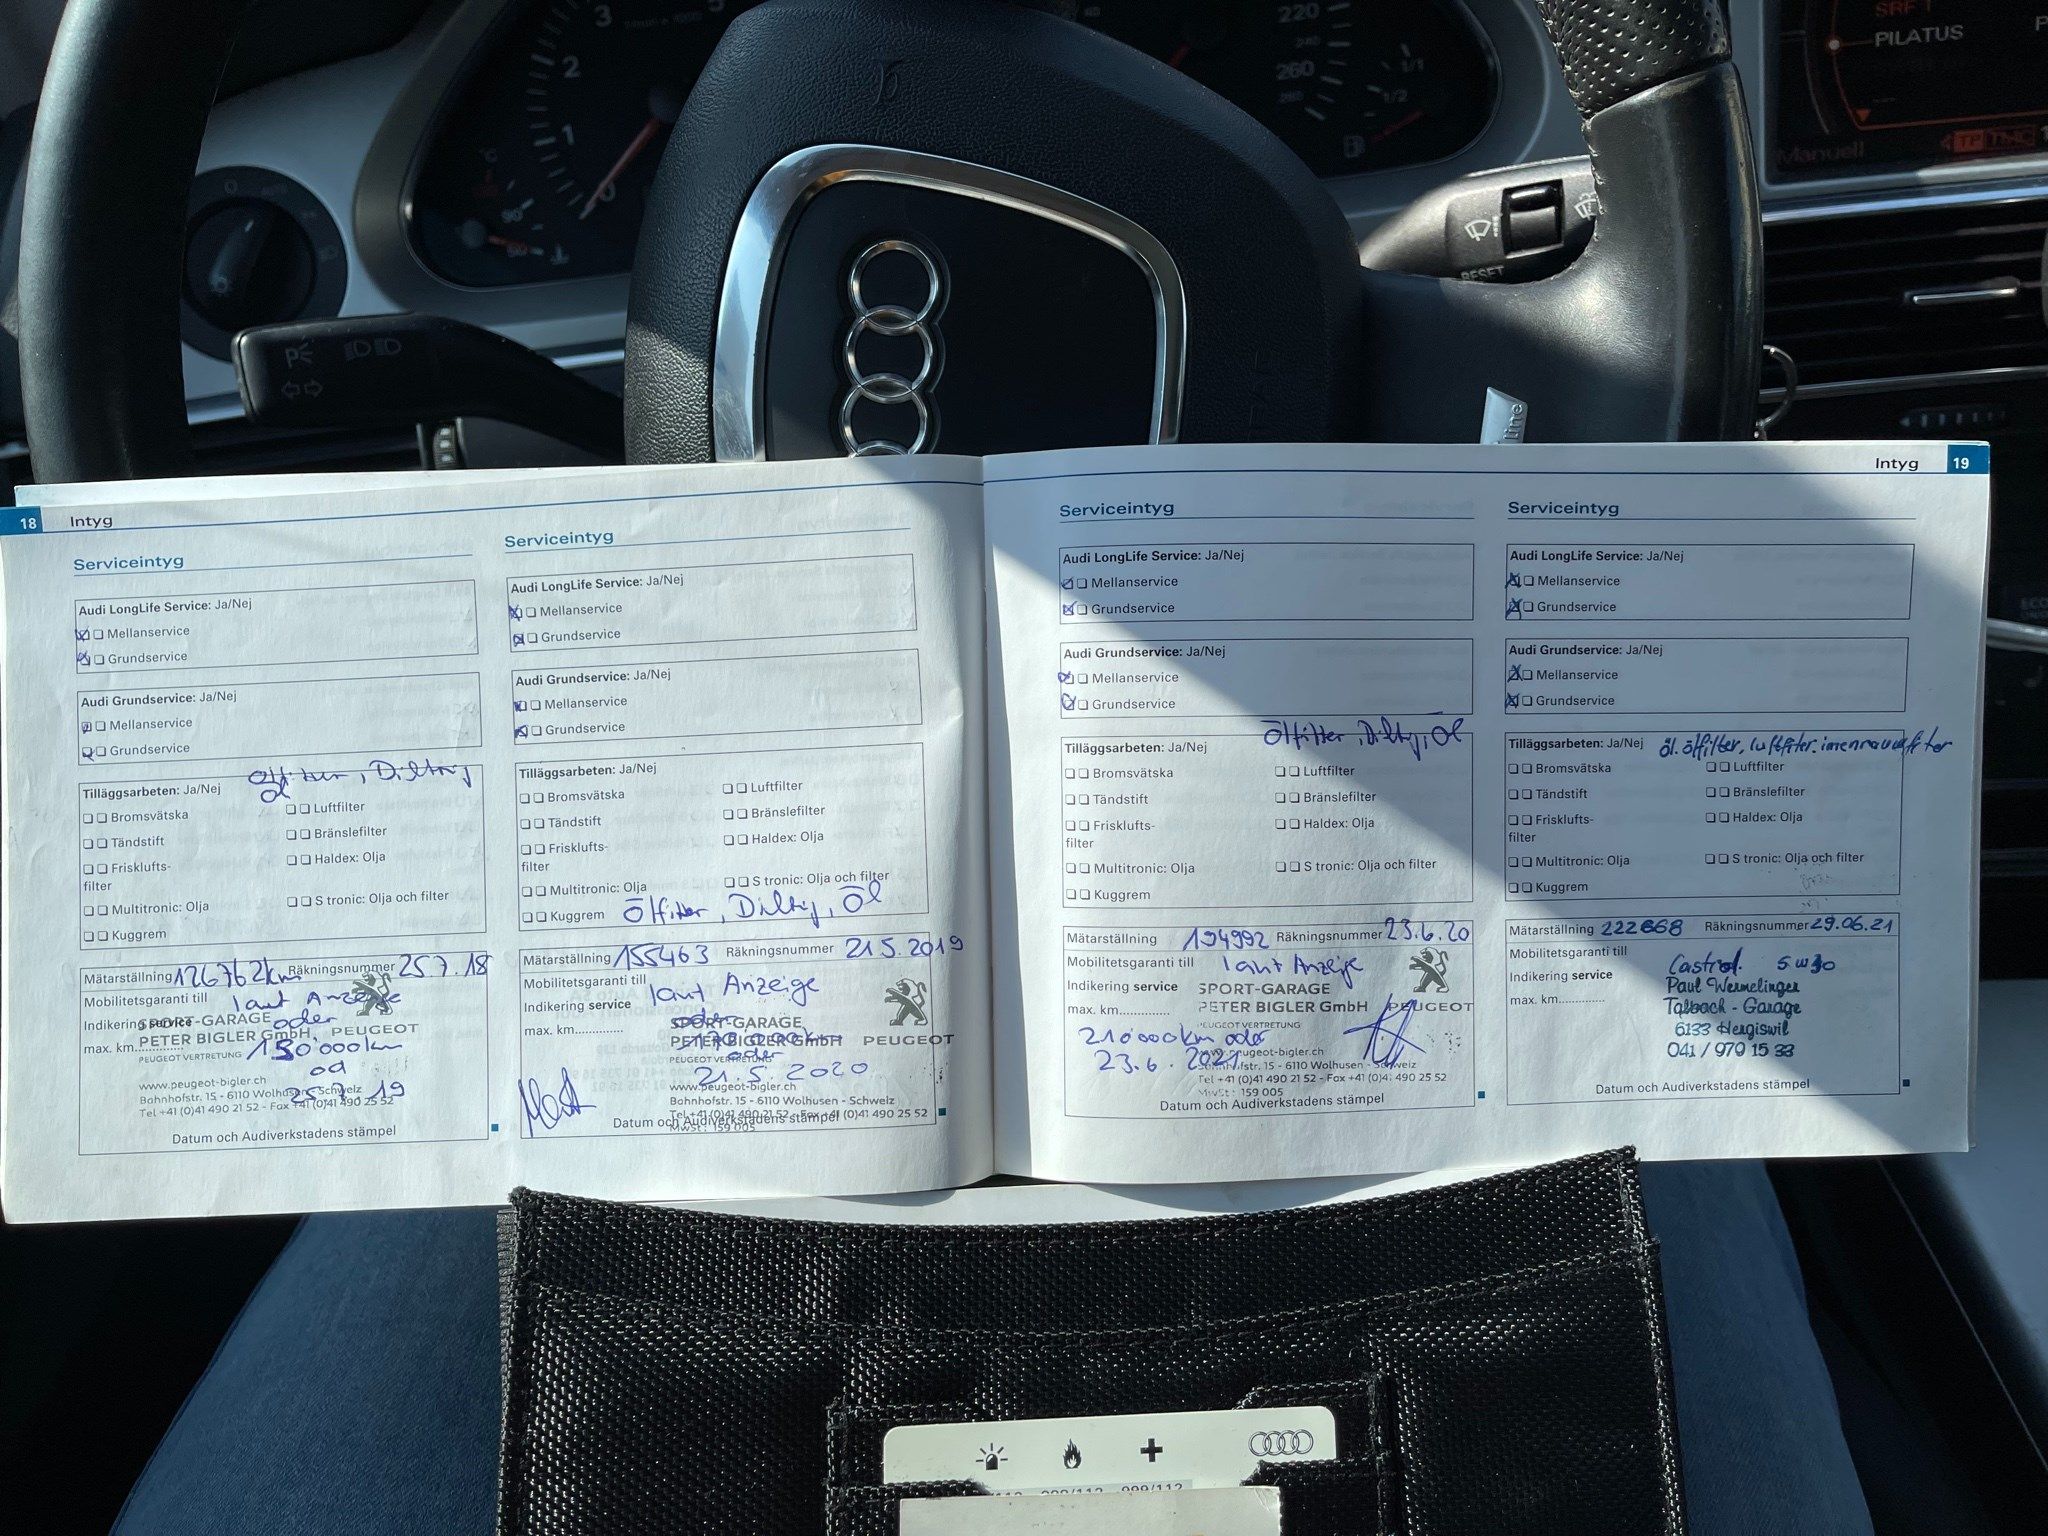 3
2
1
0
5
220
240
260
280
1/1
1/2
90
RESET
SRF 1
PILATUS
P
Manuell
TP TMC
line
18 Intyg
Serviceintyg
Audi LongLife Service: Ja/Nej
Mellanservice
Grundservice
Audi Grundservice: Ja/Nej
Mellanservice
Grundservice
Tilläggsarbeten: Ja/Nej
Öl
Bromsvätska
Luftfilter
Tändstift
Bränslefilter
Frisklufts-
filter
Haldex: Olja
Multitronic: Olja
S tronic: Olja och filter
Kuggrem
Mätarställning 126762km Räkningsnummer 25.7.18
Mobilitetsgaranti till laut Anzeige
Indikering service oder
SPORT-GARAGE
PETER BIGLER GmbH PEUGEOT
max. km............. 150'000km
PEUGEOT VERTRETUNG
od
25.7.19
www.peugeot-bigler.ch
Bahnhofstr. 15 - 6110 Wolhusen - Schweiz
Tel +41 (0)41 490 21 52 - Fax +41 (0)41 490 25 52
Datum och Audiverkstadens stämpel
Serviceintyg
Audi LongLife Service: Ja/Nej
Mellanservice
Grundservice
Audi Grundservice: Ja/Nej
Mellanservice
Grundservice
Tilläggsarbeten: Ja/Nej
Bromsvätska
Luftfilter
Tändstift
Bränslefilter
Frisklufts-
filter
Haldex: Olja
Multitronic: Olja
S tronic: Olja och filter
Kuggrem
Ölfilter, Dichtg, Öl
Mätarställning 155463 Räkningsnummer 21.5.2019
Mobilitetsgaranti till
Indikering service laut Anzeige
max. km............. oder
SPORT-GARAGE
PETER BIGLER GmbH PEUGEOT
oder
PEUGEOT VERTRETUNG
21.5.2020
www.peugeot-bigler.ch
Bahnhofstr. 15 - 6110 Wolhusen - Schweiz
Tel +41 (0)41 490 21 52 - Fax +41 (0)41 490 25 52
MwSt: 159 005
Datum och Audiverkstadens stämpel
Intyg 19
Serviceintyg
Audi LongLife Service: Ja/Nej
Mellanservice
Grundservice
Audi Grundservice: Ja/Nej
Mellanservice
Grundservice
Ölfilter, Dichtg, Öl
Tilläggsarbeten: Ja/Nej
Bromsvätska
Luftfilter
Tändstift
Bränslefilter
Frisklufts-
filter
Haldex: Olja
Multitronic: Olja
S tronic: Olja och filter
Kuggrem
Mätarställning 194992 Räkningsnummer 23.6.20
Mobilitetsgaranti till laut Anzeige
Indikering service
max. km.............
SPORT-GARAGE
PETER BIGLER GmbH PEUGEOT
PEUGEOT VERTRETUNG
210'000km oder
23.6.2021
www.peugeot-bigler.ch
Bahnhofstr. 15 - 6110 Wolhusen - Schweiz
Tel +41 (0)41 490 21 52 - Fax +41 (0)41 490 25 52
MwSt: 159 005
Datum och Audiverkstadens stämpel
Serviceintyg
Audi LongLife Service: Ja/Nej
Mellanservice
Grundservice
Audi Grundservice: Ja/Nej
Mellanservice
Grundservice
Tilläggsarbeten: Ja/Nej öl. ölfilter. luftfilter.
Bromsvätska
Luftfilter
Tändstift
Bränslefilter
Frisklufts-
filter
Haldex: Olja
Multitronic: Olja
S tronic: Olja och filter
Kuggrem
Mätarställning 222668 Räkningsnummer 29.06.21
Mobilitetsgaranti till
Indikering service
max. km.............
Castrol 5w30
Paul Wermelinger
Talbach-Garage
6133 Hergiswil
041 / 979 15 33
Datum och Audiverkstadens stämpel